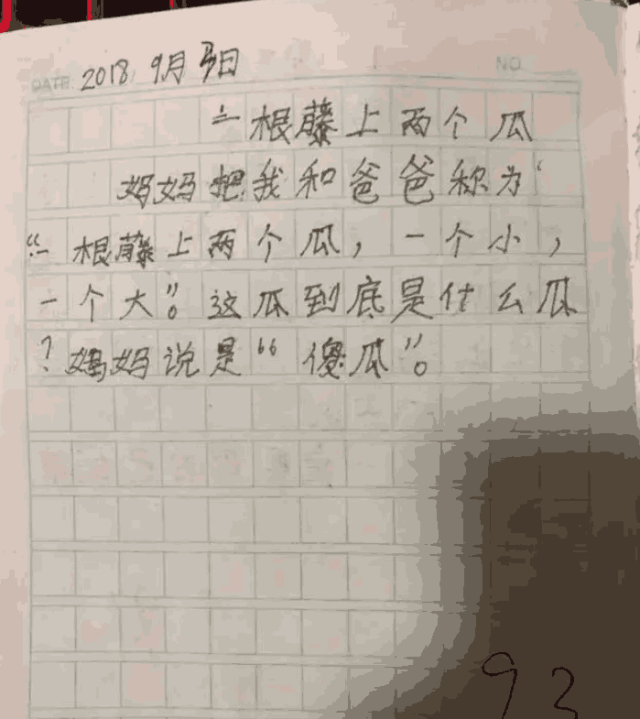 DATE 2018 9月3日
NO.
一根藤上两个瓜
妈妈把我和爸爸称为
“一根藤上两个瓜，一个小，
一个大”。这瓜到底是什么瓜
？妈妈说是“傻瓜”。
93